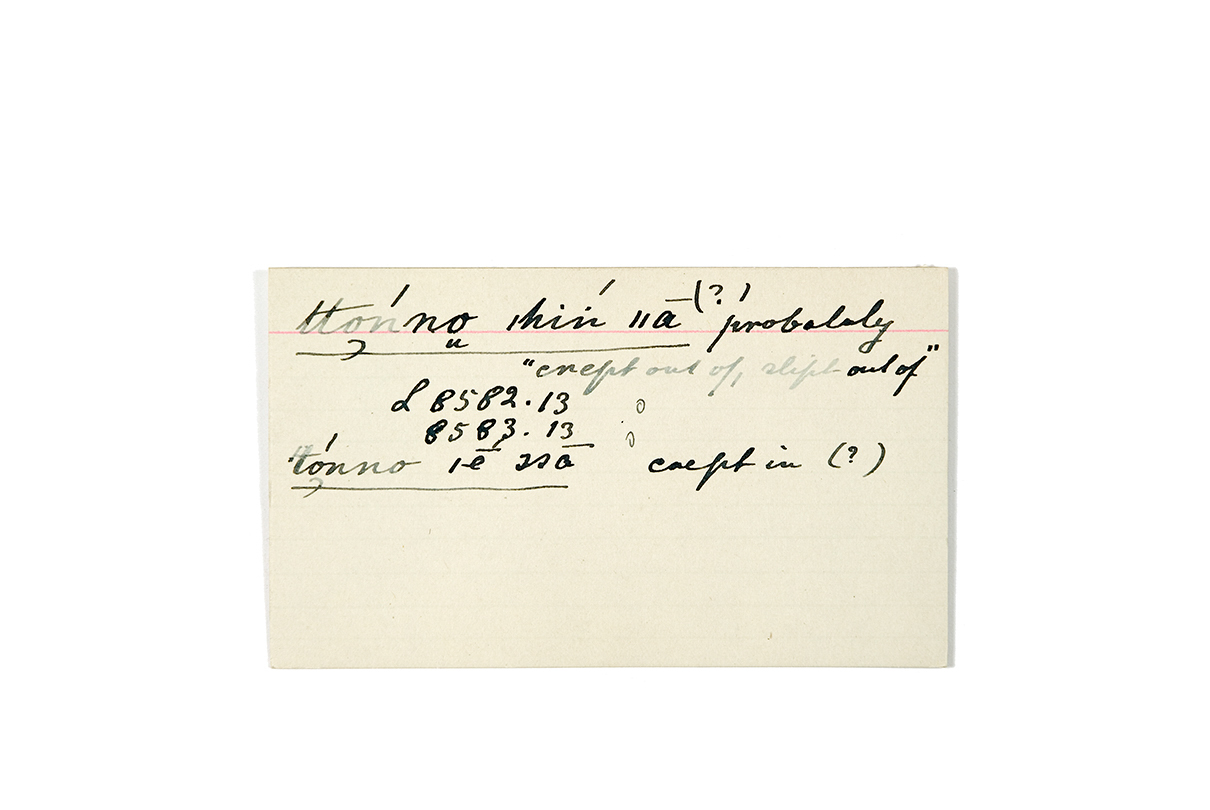 ttǫ́nno̤ ǀhiń ǁā (?) probably
"crept out of, slipt out of"
L 8582.13
8583.13
tǫ́nno ǀē ǃā crept in (?)